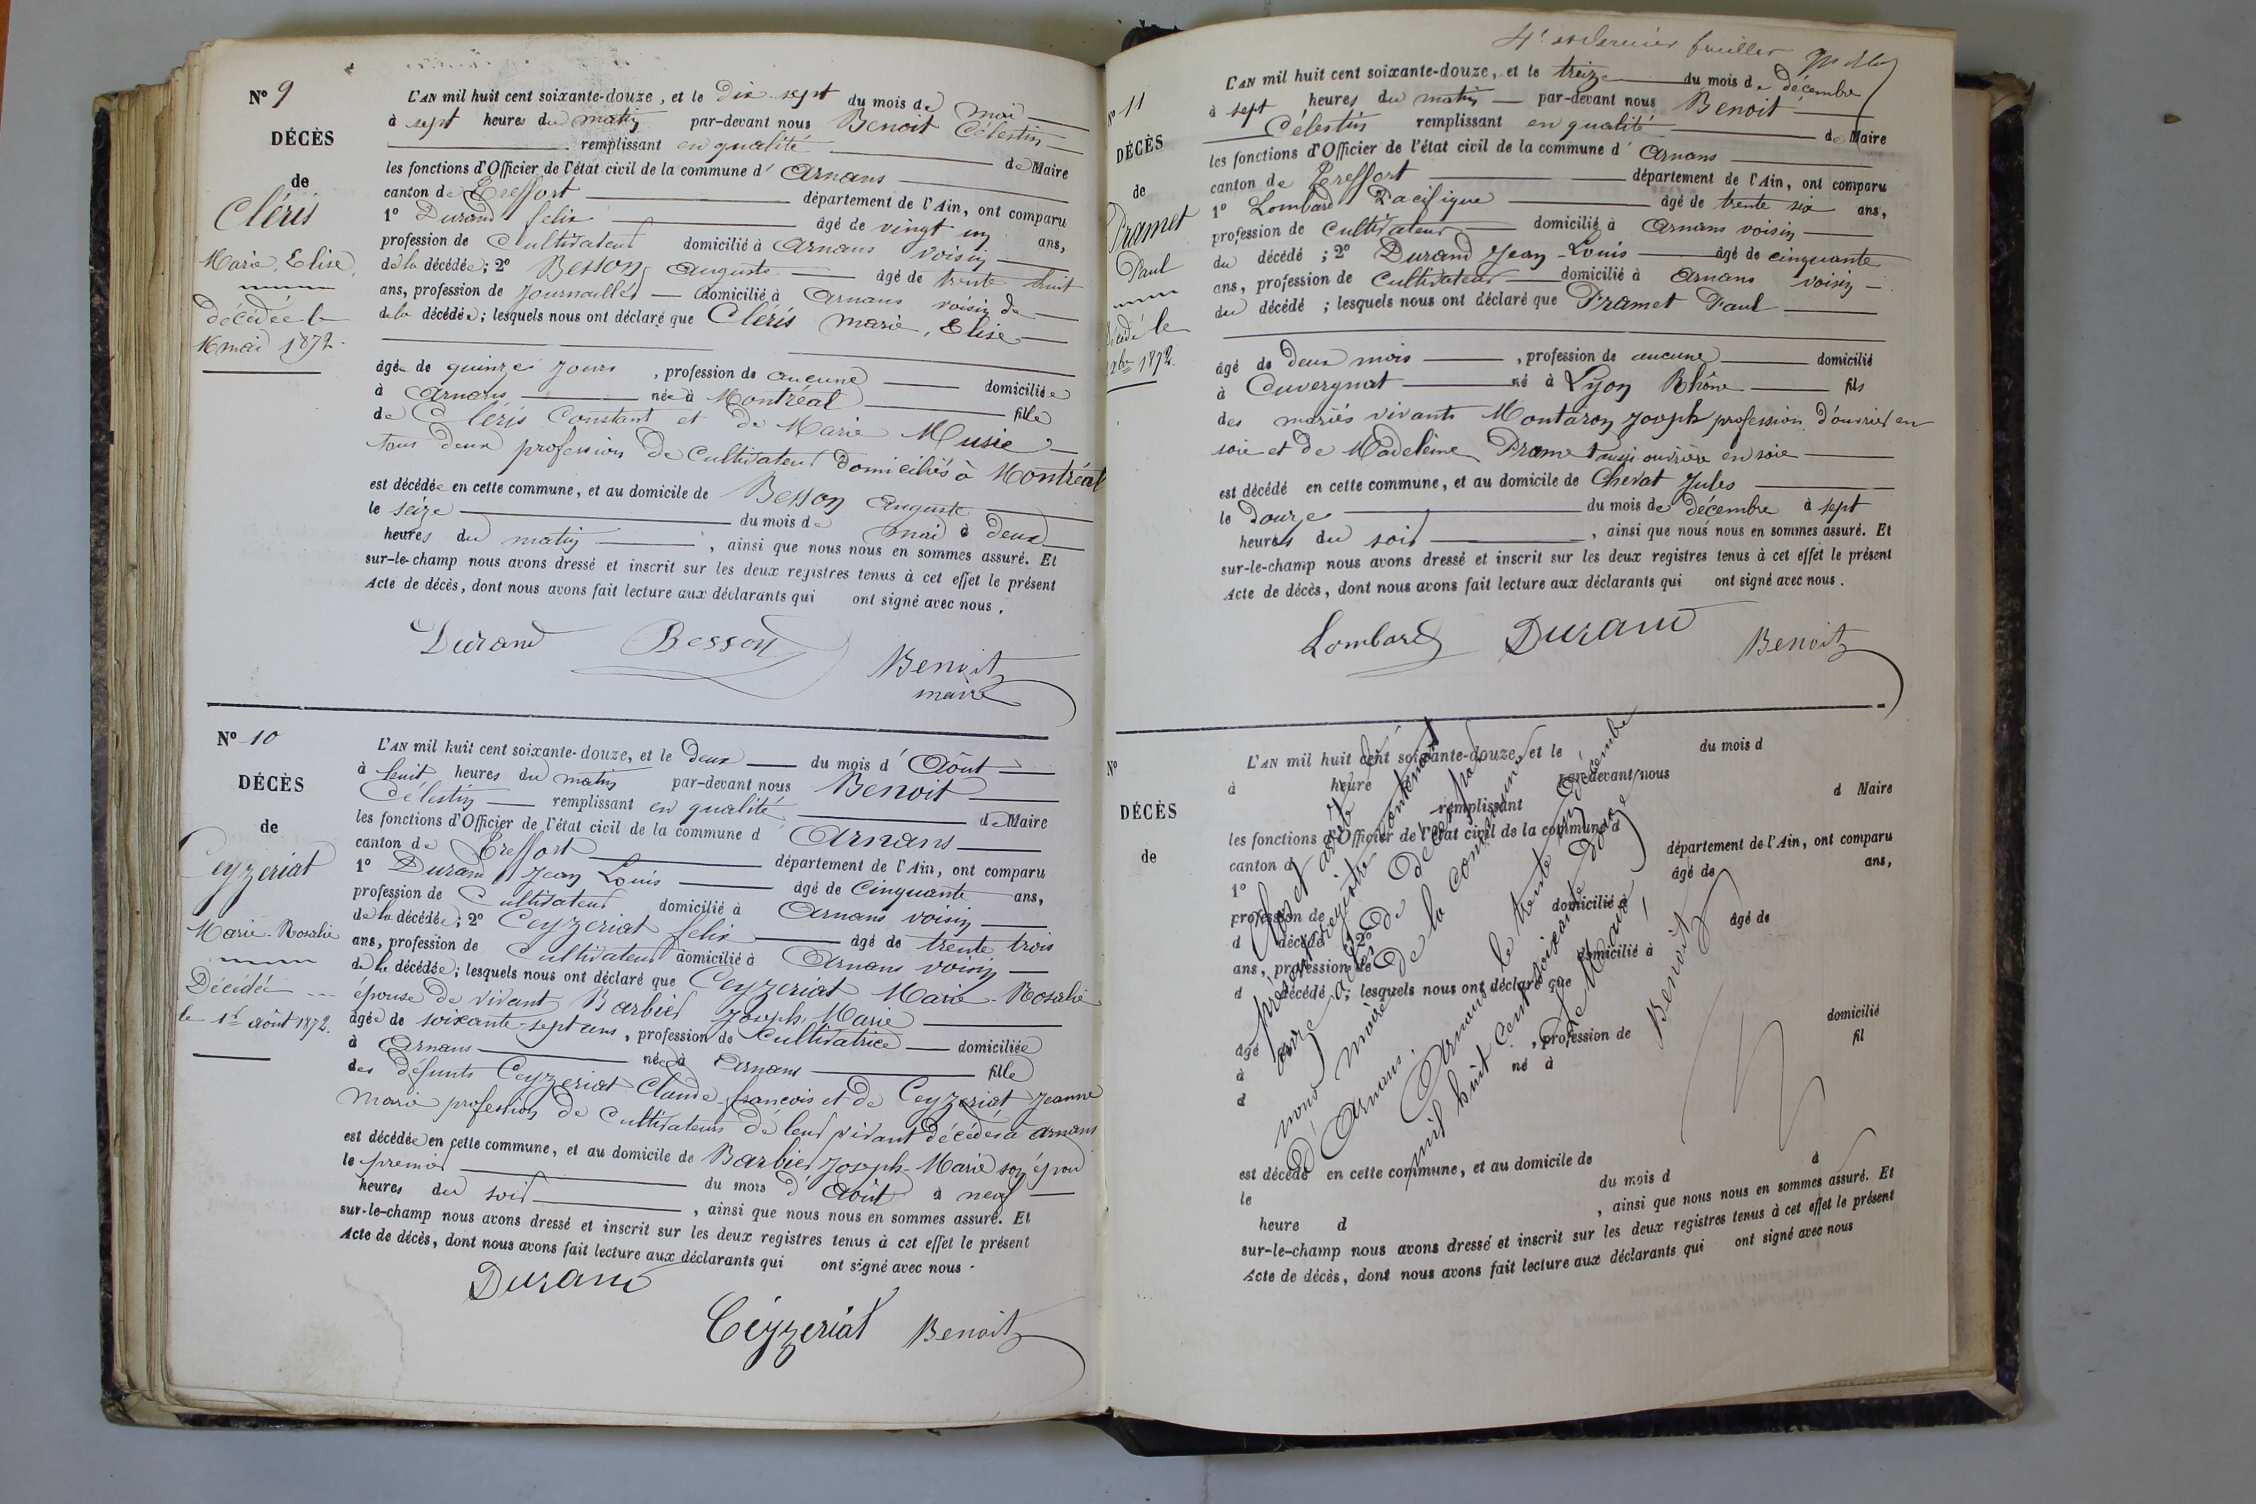 N° 9
DÉCÈS
de
Cléris
Marie, Elise,
décédée le
16 mai 1872.
L'AN mil huit cent soixante-douze, et le dix-sept du mois de mai
à sept heures du matin par-devant nous Benoit Célestin
remplissant en qualité de Maire
les fonctions d'Officier de l'état civil de la commune d' Arnans
canton de Treffort département de l'Ain, ont comparu
1° Durand felix âgé de vingt un ans,
profession de Cultivateur domicilié à Arnans voisin
de la décédée; 2° Besson Auguste âgé de trente huit
ans, profession de Journaillier domicilié à Arnans voisin de
de la décédée; lesquels nous ont déclaré que Cléris Marie, Elise
âgée de quinze jours, profession de aucune domiciliée
à Arnans née à Montréal fille
de Cléris Constant et de Marie Musie
tous deux profession de Cultivateur domiciliés à Montréal
est décédée en cette commune, et au domicile de Besson Auguste
le seize du mois de mai à deux
heures du matin, ainsi que nous nous en sommes assuré. Et
sur-le-champ nous avons dressé et inscrit sur les deux registres tenus à cet effet le présent
Acte de décès, dont nous avons fait lecture aux déclarants qui ont signé avec nous.
Durand Besson Benoit
maire
N° 10
DÉCÈS
de
Ceyzeriat
Marie-Rosalie
Décédée
le 1er Août 1872.
L'AN mil huit cent soixante-douze, et le deux du mois d' Août
à huit heures du matin par-devant nous Benoit
Célestin remplissant en qualité de Maire
les fonctions d'Officier de l'état civil de la commune d Arnans
canton de Treffort département de l'Ain, ont comparu
1° Durand Jean Louis âgé de Cinquante ans,
profession de Cultivateur domicilié à Arnans voisin
de la décédée; 2° Ceyzeriat felix âgé de trente trois
ans, profession de Cultivateur domicilié à Arnans voisin
de la décédée; lesquels nous ont déclaré que Ceyzeriat Marie-Rosalie
épouse de vivant Barbier Joseph-Marie
âgée de soixante-sept ans, profession de Cultivatrice domiciliée
à Arnans née à Arnans fille
des défunts Ceyzeriat Claude-françois et de Ceyzeriat Jeanne
Marie profession de Cultivateurs de leur vivant décédés à Arnans
est décédée en cette commune, et au domicile de Barbier Joseph-Marie son épou
le premier du mois d' Août à neuf
heures du soir, ainsi que nous nous en sommes assuré. Et
sur-le-champ nous avons dressé et inscrit sur les deux registres tenus à cet effet le présent
Acte de décès, dont nous avons fait lecture aux déclarants qui ont signé avec nous.
Durand
Ceyzeriat Benoit
4e et dernier feuillet
N° 11
DÉCÈS
de
Pramet
Paul
décédé le
1872.
L'AN mil huit cent soixante-douze, et le treize du mois de décembre
à sept heures du matin par-devant nous Benoit
Célestin remplissant en qualité de Maire
les fonctions d'Officier de l'état civil de la commune d' Arnans
canton de Treffort département de l'Ain, ont comparu
1° Lombard Pacifique âgé de trente six ans,
profession de Cultivateur domicilié à Arnans voisin
du décédé; 2° Durand Jean-Louis âgé de cinquante
ans, profession de Cultivateur domicilié à Arnans voisin
du décédé; lesquels nous ont déclaré que Pramet Paul
âgé de deux mois, profession de aucune domicilié
à Cuvergnat né à Lyon Rhône fils
des mariés vivants Montaron Joseph profession d'ouvrier en
soie et de Madeleine Pramet aussi ouvrière en soie
est décédé en cette commune, et au domicile de Chevat Jules
le douze du mois de décembre à sept
heures du soir, ainsi que nous nous en sommes assuré. Et
sur-le-champ nous avons dressé et inscrit sur les deux registres tenus à cet effet le présent
Acte de décès, dont nous avons fait lecture aux déclarants qui ont signé avec nous.
Lombard Durand Benoit
N°
DÉCÈS
de
L'AN mil huit cent soixante-douze, et le du mois d
à heure par-devant nous
remplissant d Maire
les fonctions d'Officier de l'état civil de la commune d
canton d département de l'Ain, ont comparu
1° âgé de ans,
profession de domicilié à
d décédé 2° âgé de
ans, profession de domicilié à
d décédé; lesquels nous ont déclaré que
âgé, profession de domicilié
à né à fil
d
est décédé en cette commune, et au domicile de
le du mois d à
heure d, ainsi que nous nous en sommes assuré. Et
sur-le-champ nous avons dressé et inscrit sur les deux registres tenus à cet effet le présent
Acte de décès, dont nous avons fait lecture aux déclarants qui ont signé avec nous
Clos et arrêté le
présent registre contenant
onze actes de décès par
nous maire de la commune
d'Arnans.
Arnans le trente un décembre
mil huit cent soixante douze
Le Maire,
Benoit